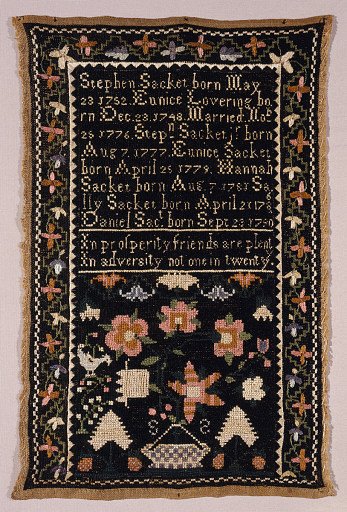 Stephen Sacket born May
23 1752. Eunice Lovering bo
rn Dec. 23. 1748. Married. Mar
26 1776. Stepn Sacket jr born
Aug 7. 1777. Eunice Sacket
born April 25 1779. Hannah
Sacket born Aug 7 1781 Sa
lly Sacket born April 21 178
Daniel Sac. born Sept 23 17
In prosperity friends are plent
In adversity not one in twenty.